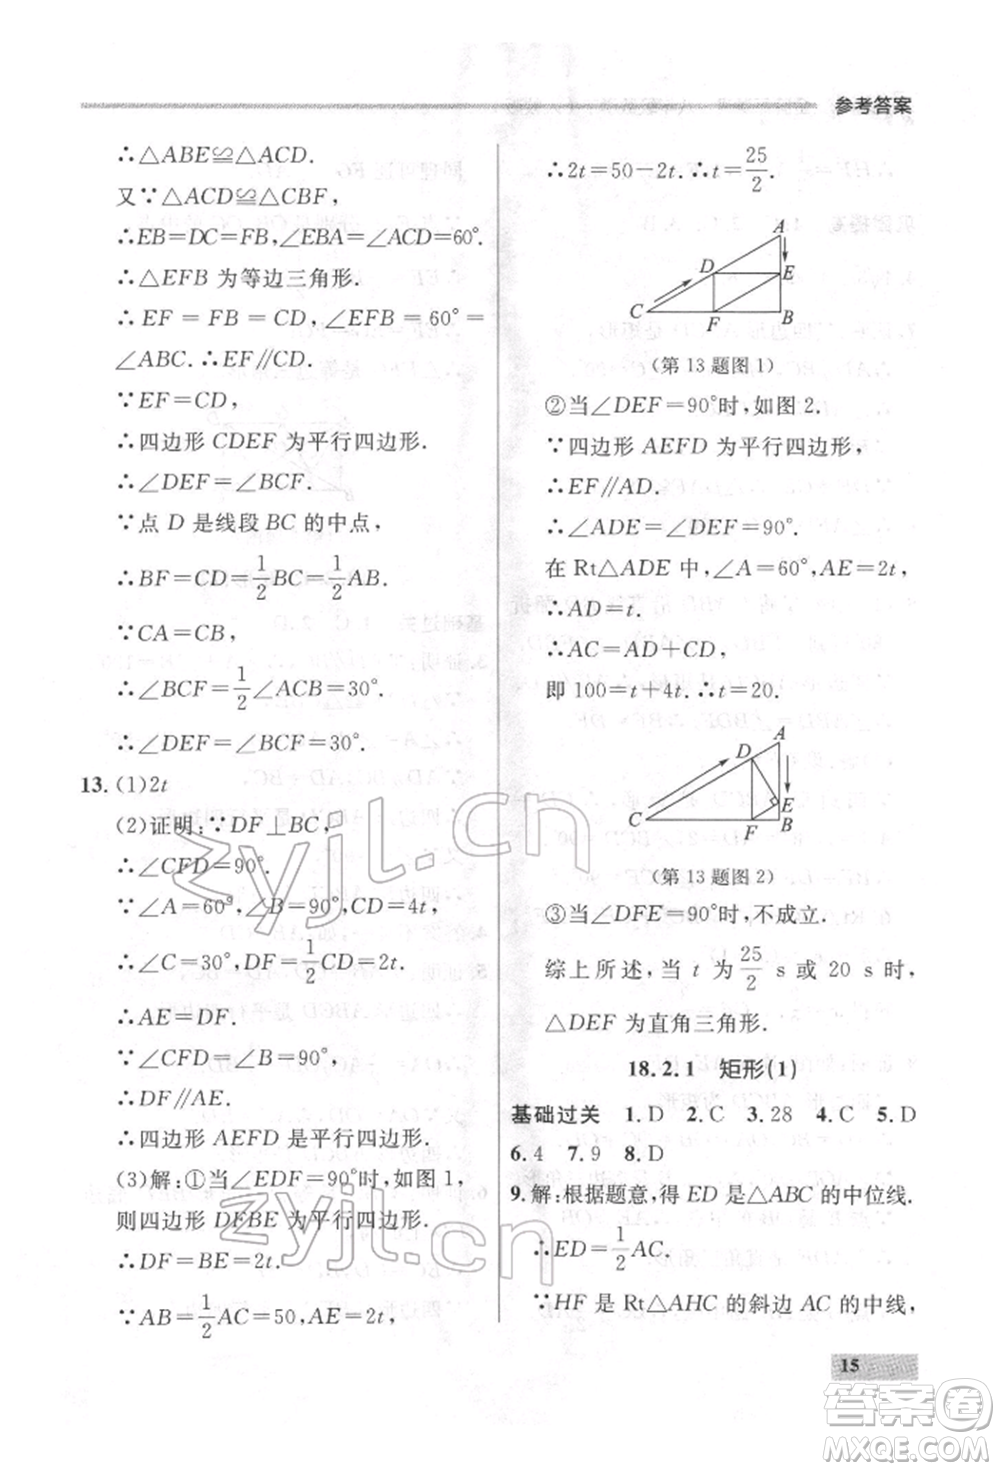 参考答案
∴△ABE≌△ACD.
又∵△ACD≌△CBF,
∴EB=DC=FB,∠EBA=∠ACD=60°.
∴△EFB 为等边三角形.
∴EF = FB = CD, ∠EFB = 60° =
∠ABC. ∴EF∥CD.
∵EF=CD,
∴四边形 CDEF 为平行四边形.
∴∠DEF=∠BCF.
∵点 D 是线段 BC 的中点,
∴BF=CD=1/2BC=1/2AB.
∵CA=CB,
∴∠BCF=1/2∠ACB=30°.
∴∠DEF=∠BCF=30°.
13. (1)2t
(2)证明:∵DF⊥BC,
∴∠CFD=90°.
∵∠A=60°,∠B=90°,CD=4t,
∴∠C=30°,DF=1/2CD=2t.
∴AE=DF.
∵∠CFD=∠B=90°,
∴DF∥AE.
∴四边形 AEFD 是平行四边形.
(3)解:①当∠EDF=90°时,如图 1,
则四边形 DFBE 为平行四边形.
∴DF=BE=2t.
∵AB=1/2AC=50,AE=2t,
∴2t=50-2t.∴t=25/2.
A
D
E
C
F
B
(第 13 题图 1)
②当∠DEF=90°时,如图 2.
∵四边形 AEFD 为平行四边形,
∴EF∥AD.
∴∠ADE=∠DEF=90°.
在 Rt△ADE 中,∠A=60°,AE=2t,
∴AD=t.
∴AC=AD+CD,
即 100=t+4t.∴t=20.
A
D
E
C
F
B
(第 13 题图 2)
③当∠DFE=90°时,不成立.
综上所述,当 t 为 25/2 s 或 20 s 时,
△DEF 为直角三角形.
18.2.1 矩形(1)
基础过关 1.D 2.C 3.28 4.C 5.D
6.4 7.9 8.D
9.解:根据题意,得 ED 是△ABC 的中位线.
∴ED=1/2AC.
∵HF 是 Rt△AHC 的斜边 AC 的中线,
15
zyjl.cn
zyjl.cn
答案圈
MXQE.COM